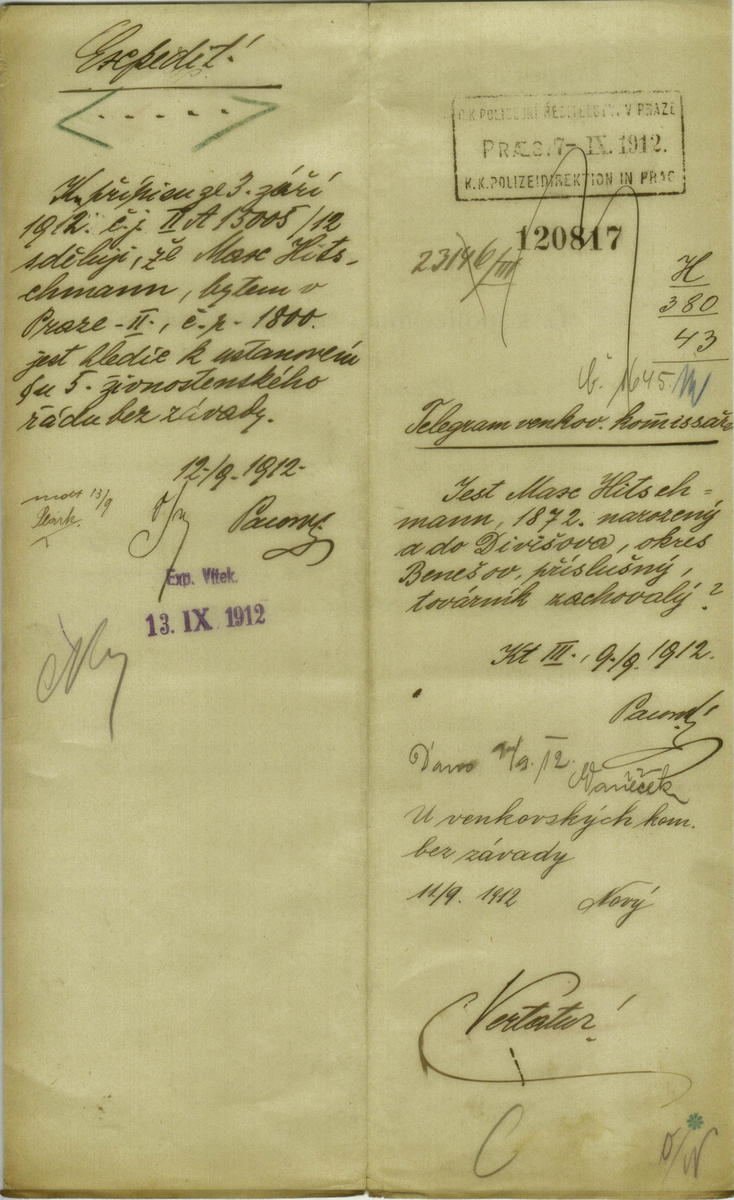 Expedit!
K přípisu ze 3. září
1912. č.j. II A 15005/12
sděluji, že Max Hits-
chmann, bytem v
Praze-II., č.p. 1800.
jest hledíc k ustanovení
§u 5. živnostenského
řádu bez závady.
12/9. 1912.
13/9
Exp. Vítek.
13. IX 1912
C.K. POLICEJNÍ ŘEDITELSTV. V PRAZE
PRAES. 7- IX. 1912.
K.K. POLIZEIDIREKTION IN PRAG
120817
23146/III
H
380
43
č. 1645
Telegram venkov. komissařs
Jest Max Hitsch=
mann, 1872. narozený
a do Divišova, okres
Benešov, příslušný,
továrník zachovalý?
Kt III., 9./9. 1912.
Dáno /9. 12.
Vaněček
U venkovských kom.
bez závady
11/9. 1912 Nový
Vertatur!